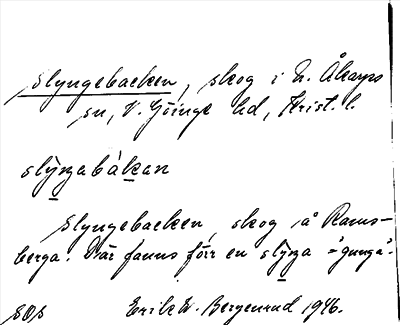 Slyngebacken, skog i N. Åkarps
sn, V. Göinge hd, Krist. l.
slyŋabàkan
Slyngebacken, skog å Rams-
berga. Där fanns förr en slyŋa = "gunga".
SOS Erik W. Bergenrud 1946.